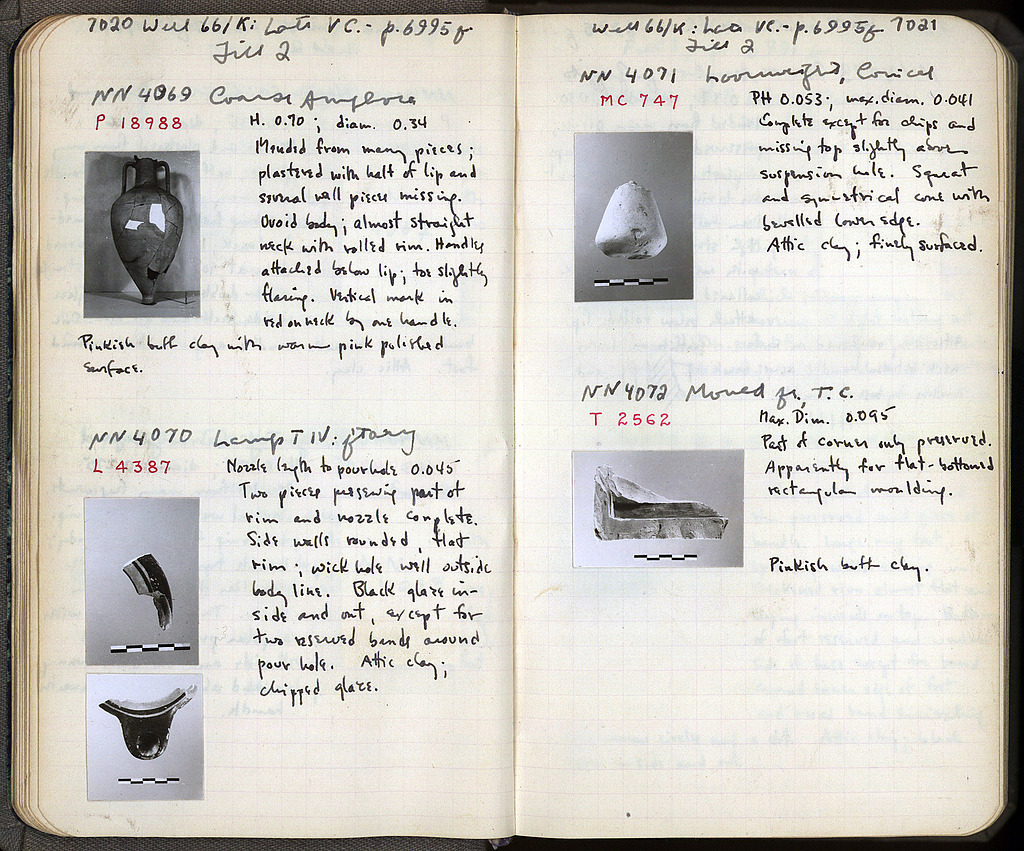 7020 Well 66/K: Late VC. - p. 6995f
Fill 2
NN 4069 Coarse Amphora
P 18988
H. 0.70; diam. 0.34
Mended from many pieces;
plastered with half of lip and
several wall pieces missing.
Ovoid body; almost straight
neck with rolled rim. Handles
attached below lip; toe slightly
flaring. Vertical mark in
red on neck by one handle.
Pinkish buff clay with warm pink polished
surface.
NN 4070 Lamp T IV:
L 4387
Nozzle length to pourhole 0.045
Two pieces preserving part of
rim and nozzle complete.
Side walls rounded, flat
rim; wick hole well outside
body line. Black glaze in-
side and out, except for
two reserved bands around
pour hole. Attic clay;
chipped glaze.
Well 66/K: Late VC. - p. 6995f 7021
Fill 2
NN 4071 Loomweight, Conical
MC 747
PH 0.053; max. diam. 0.041
Complete except for chips and
missing top slightly above
suspension hole. Squat
and symmetrical cone with
bevelled lower edge.
Attic clay; finely surfaced.
NN 4072 Mould fr., T.C.
T 2562
Max. Dim. 0.095
Part of corner only preserved.
Apparently for flat-bottomed
rectangular moulding.
Pinkish buff clay.